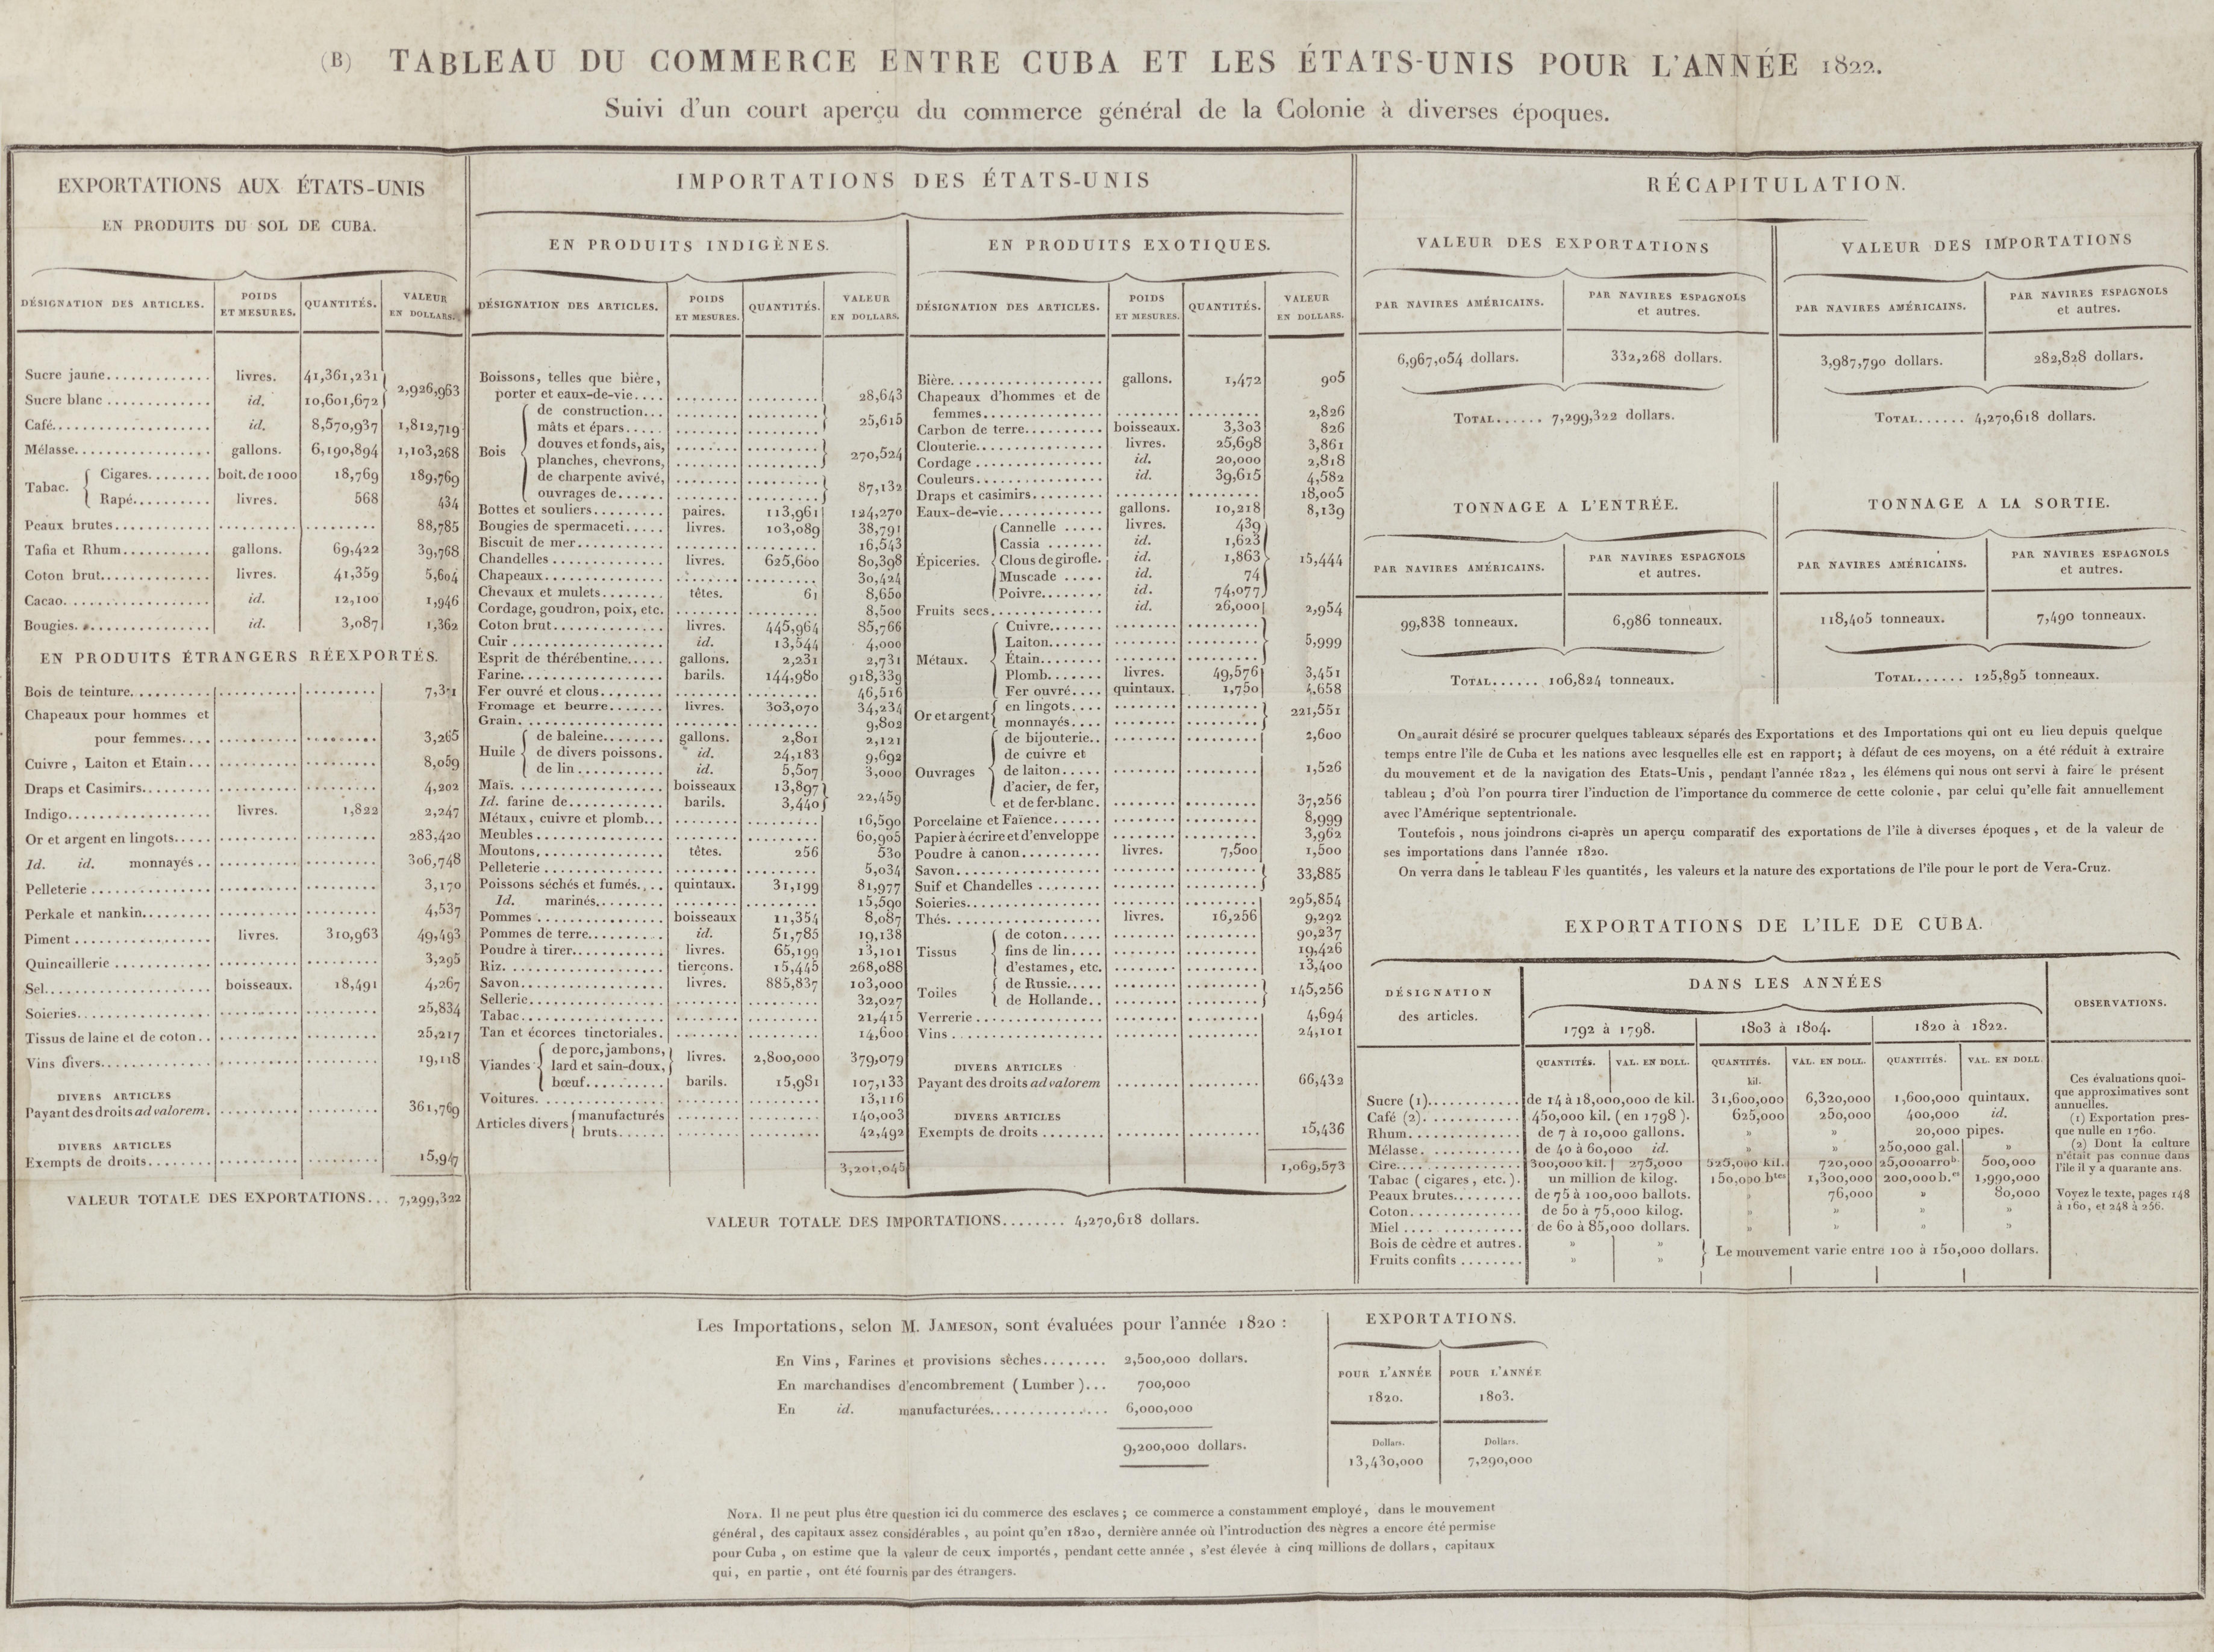 (B) TABLEAU DU COMMERCE ENTRE CUBA ET LES ÉTATS-UNIS POUR L'ANNÉE 1822.
Suivi d'un court aperçu du commerce général de la Colonie à diverses époques.
EXPORTATIONS AUX ÉTATS-UNIS
EN PRODUITS DU SOL DE CUBA.
DÉSIGNATION DES ARTICLES. POIDS ET MESURES. QUANTITÉS. VALEUR EN DOLLARS.
Sucre jaune............. livres. 41,361,231
Sucre blanc ............. id. 10,601,672 } 2,926,963
Café................... id. 8,570,937 1,812,719
Mélasse................. gallons. 6,190,894 1,103,268
Tabac. { Cigares........ boît. de 1000 18,769 189,769
Rapé.......... livres. 568 434
Peaux brutes............ ........... ......... 88,785
Tafia et Rhum........... gallons. 69,422 39,768
Coton brut.............. livres. 41,359 5,604
Cacao.................. id. 12,100 1,946
Bougies................ id. 3,087 1,362
EN PRODUITS ÉTRANGERS RÉEXPORTÉS.
Bois de teinture.......... .......... ......... 7,371
Chapeaux pour hommes et
pour femmes.... .......... ......... 3,265
Cuivre, Laiton et Etain... .......... ......... 8,059
Draps et Casimirs........ .......... ......... 4,202
Indigo................. livres. 1,822 2,247
Or et argent en lingots..... .......... ......... 283,420
Id. id. monnayés.. .......... ......... 306,748
Pelleterie .............. .......... ......... 3,170
Perkale et nankin........ .......... ......... 4,537
Piment ................ livres. 310,963 49,493
Quincaillerie ............ .......... ......... 3,295
Sel.................... boisseaux. 18,491 4,267
Soieries................ .......... ......... 25,834
Tissus de laine et de coton.. .......... ......... 25,217
Vins divers............. .......... ......... 19,118
DIVERS ARTICLES
Payant des droits ad valorem. .......... ......... 361,769
DIVERS ARTICLES
Exempts de droits........ .......... ......... 15,947
VALEUR TOTALE DES EXPORTATIONS... 7,299,322
IMPORTATIONS DES ÉTATS-UNIS
EN PRODUITS INDIGÈNES.
DÉSIGNATION DES ARTICLES. POIDS ET MESURES. QUANTITÉS. VALEUR EN DOLLARS.
Boissons, telles que bière,
porter et eaux-de-vie.... ........ ......... 28,643
Bois { de construction...
mâts et épars..... } 25,615
douves et fonds, ais,
planches, chevrons, } 270,524
de charpente avivé,
ouvrages de...... } 87,132
Bottes et souliers......... paires. 113,961 124,270
Bougies de spermaceti..... livres. 103,089 38,791
Biscuit de mer........... ........ ......... 16,543
Chandelles ............. livres. 625,600 80,398
Chapeaux.............. ........ ......... 30,424
Chevaux et mulets........ têtes. 61 8,650
Cordage, goudron, poix, etc. ........ ......... 8,500
Coton brut.............. livres. 445,964 85,766
Cuir .................. id. 13,544 4,000
Esprit de thérébentine..... gallons. 2,231 2,731
Farine................. barils. 144,980 918,339
Fer ouvré et clous........ ........ ......... 46,516
Fromage et beurre....... livres. 303,070 34,234
Grain.................. ........ ......... 9,802
Huile { de baleine........ gallons. 2,801 2,121
de divers poissons. id. 24,183 9,692
de lin........... id. 5,507 3,000
Maïs................... boisseaux 13,897
Id. farine de............ barils. 3,440 } 22,459
Métaux, cuivre et plomb... ........ ......... 16,590
Meubles ............... ........ ......... 60,905
Moutons................ têtes. 256 530
Pelleterie .............. ........ ......... 5,034
Poissons séchés et fumés.... quintaux. 31,199 81,977
Id. marinés......... ........ ......... 15,590
Pommes ............... boisseaux 11,354 8,087
Pommes de terre......... id. 51,785 19,138
Poudre à tirer........... livres. 65,199 13,101
Riz.................... tierçons. 15,445 268,088
Savon.................. livres. 885,837 103,000
Sellerie................ ........ ......... 32,027
Tabac.................. ........ ......... 21,415
Tan et écorces tinctoriales. ........ ......... 14,600
Viandes { de porc, jambons,
lard et sain-doux, } livres. 2,800,000 379,079
bœuf.......... barils. 15,981 107,133
Voitures................ ........ ......... 13,116
Articles divers { manufacturés ........ ......... 140,003
bruts...... ........ ......... 42,492
3,201,045
EN PRODUITS EXOTIQUES.
DÉSIGNATION DES ARTICLES. POIDS ET MESURES. QUANTITÉS. VALEUR EN DOLLARS.
Bière................... gallons. 1,472 905
Chapeaux d'hommes et de
femmes............... ........ ......... 2,826
Carbon de terre.......... boisseaux. 3,303 826
Clouterie............... livres. 25,698 3,861
Cordage ............... id. 20,000 2,818
Couleurs................ id. 39,615 4,582
Draps et casimirs......... ........ ......... 18,005
Eaux-de-vie............. gallons. 10,218 8,139
Épiceries. { Cannelle ..... livres. 439
Cassia ....... id. 1,623
Clous de girofle. id. 1,863 } 15,444
Muscade ..... id. 74
Poivre........ id. 74,077
Fruits secs.............. id. 26,000 2,954
Métaux. { Cuivre.......
Laiton....... } 5,999
Étain........
Plomb....... livres. 49,576 3,451
Fer ouvré.... quintaux. 1,750 4,658
Or et argent { en lingots....
monnayés.... } 221,551
Ouvrages { de bijouterie.. ........ ......... 2,600
de cuivre et
de laiton..... ........ ......... 1,526
d'acier, de fer,
et de fer-blanc. ........ ......... 37,256
Porcelaine et Faïence...... ........ ......... 8,999
Papier à écrire et d'enveloppe ........ ......... 3,962
Poudre à canon.......... livres. 7,500 1,500
Savon..................
Suif et Chandelles ........ } 33,885
Soieries................ ........ ......... 295,854
Thés................... livres. 16,256 9,292
Tissus { de coton..... ........ ......... 90,237
fins de lin.... ........ ......... 19,426
d'estames, etc. ........ ......... 13,400
Toiles { de Russie.....
de Hollande.. } 145,256
Verrerie ............... ........ ......... 4,694
Vins .................. ........ ......... 24,101
DIVERS ARTICLES
Payant des droits ad valorem ........ ......... 66,432
DIVERS ARTICLES
Exempts de droits ........ ........ ......... 15,436
1,069,573
VALEUR TOTALE DES IMPORTATIONS........ 4,270,618 dollars.
RÉCAPITULATION.
VALEUR DES EXPORTATIONS
PAR NAVIRES AMÉRICAINS. PAR NAVIRES ESPAGNOLS et autres.
6,967,054 dollars. 332,268 dollars.
TOTAL...... 7,299,322 dollars.
VALEUR DES IMPORTATIONS
PAR NAVIRES AMÉRICAINS. PAR NAVIRES ESPAGNOLS et autres.
3,987,790 dollars. 282,828 dollars.
TOTAL...... 4,270,618 dollars.
TONNAGE A L'ENTRÉE.
PAR NAVIRES AMÉRICAINS. PAR NAVIRES ESPAGNOLS et autres.
99,838 tonneaux. 6,986 tonneaux.
TOTAL...... 106,824 tonneaux.
TONNAGE A LA SORTIE.
PAR NAVIRES AMÉRICAINS. PAR NAVIRES ESPAGNOLS et autres.
118,405 tonneaux. 7,490 tonneaux.
TOTAL...... 125,895 tonneaux.
On aurait désiré se procurer quelques tableaux séparés des Exportations et des Importations qui ont eu lieu depuis quelque
temps entre l'île de Cuba et les nations avec lesquelles elle est en rapport; à défaut de ces moyens, on a été réduit à extraire
du mouvement et de la navigation des Etats-Unis, pendant l'année 1822, les élémens qui nous ont servi à faire le présent
tableau; d'où l'on pourra tirer l'induction de l'importance du commerce de cette colonie, par celui qu'elle fait annuellement
avec l'Amérique septentrionale.
Toutefois, nous joindrons ci-après un aperçu comparatif des exportations de l'île à diverses époques, et de la valeur de
ses importations dans l'année 1820.
On verra dans le tableau F les quantités, les valeurs et la nature des exportations de l'île pour le port de Vera-Cruz.
EXPORTATIONS DE L'ILE DE CUBA.
DÉSIGNATION des articles. DANS LES ANNÉES OBSERVATIONS.
1792 à 1798. 1803 à 1804. 1820 à 1822.
QUANTITÉS. VAL. EN DOLL. QUANTITÉS. VAL. EN DOLL. QUANTITÉS. VAL. EN DOLL.
kil.
Sucre (1)........... de 14 à 18,000,000 de kil. 31,600,000 6,320,000 1,600,000 quintaux.
Café (2)............ 450,000 kil. (en 1798). 625,000 250,000 400,000 id.
Rhum.............. de 7 à 10,000 gallons. » » 20,000 pipes.
Mélasse............ de 40 à 60,000 id. » » 250,000 gal. »
Cire............... 300,000 kil. 275,000 525,000 kil. 720,000 25,000 arrob. 500,000
Tabac (cigares, etc.). un million de kilog. 150,000 btes 1,300,000 200,000 b.es 1,990,000
Peaux brutes........ de 75 à 100,000 ballots. » 76,000 » 80,000
Coton.............. de 50 à 75,000 kilog. » » » »
Miel ............... de 60 à 85,000 dollars. » » » »
Bois de cèdre et autres. » »
Fruits confits ........ » » } Le mouvement varie entre 100 à 150,000 dollars.
Ces évaluations quoi-
que approximatives sont
annuelles.
(1) Exportation pres-
que nulle en 1760.
(2) Dont la culture
n'était pas connue dans
l'île il y a quarante ans.
Voyez le texte, pages 148
à 160, et 248 à 256.
Les Importations, selon M. JAMESON, sont évaluées pour l'année 1820 :
En Vins, Farines et provisions sèches........ 2,500,000 dollars.
En marchandises d'encombrement (Lumber)... 700,000
En id. manufacturées............... 6,000,000
9,200,000 dollars.
EXPORTATIONS.
POUR L'ANNÉE 1820. POUR L'ANNÉE 1803.
Dollars. Dollars.
13,430,000 7,290,000
NOTA. Il ne peut plus être question ici du commerce des esclaves; ce commerce a constamment employé, dans le mouvement
général, des capitaux assez considérables, au point qu'en 1820, dernière année où l'introduction des nègres a encore été permise
pour Cuba, on estime que la valeur de ceux importés, pendant cette année, s'est élevée à cinq millions de dollars, capitaux
qui, en partie, ont été fournis par des étrangers.